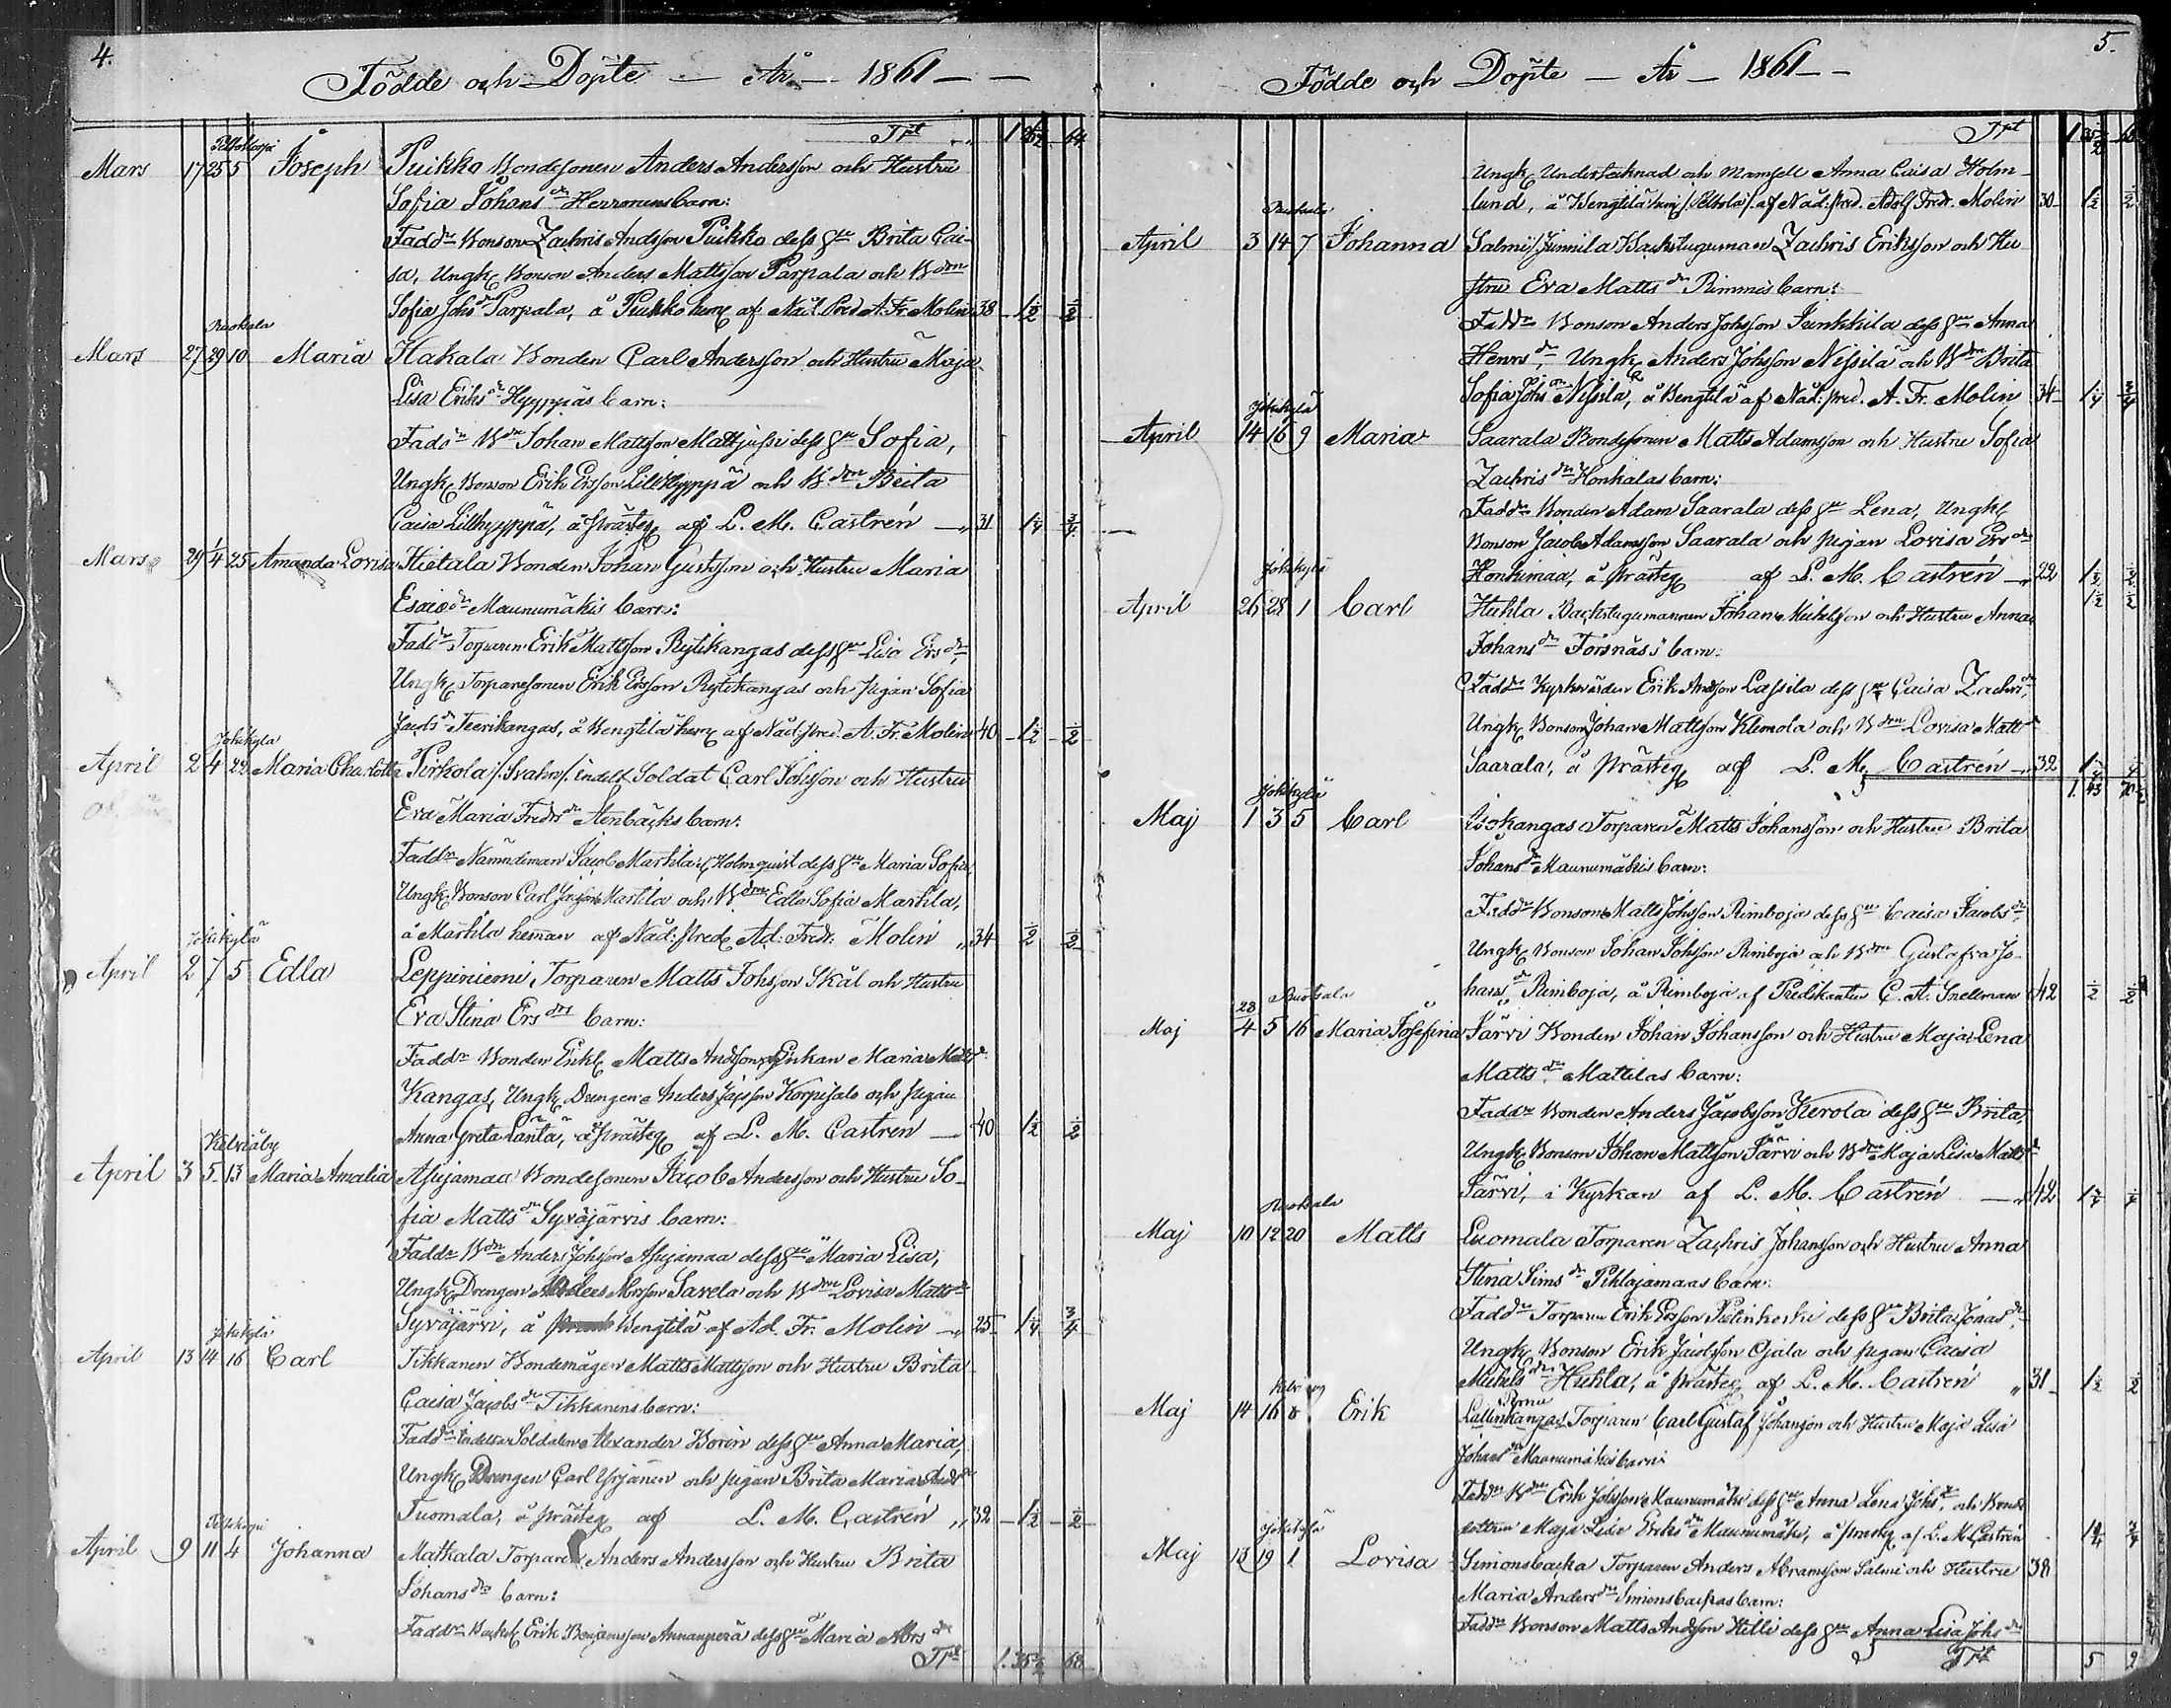 4.
Födde och Döpte — År — 1861 — —
Trpt
Mars 17 25 5 Joseph Puikko Bondesonen Anders Andersson och Hustru
Sofia Johans dr Herronens barn:
Fadd r Bonson Zachris Andsson Puikko dess hu Brita Cai-
sa, Ungk Bonson Anders Mattsson Parpala och Bdrn
Sofia Johs dr Parpala, å Puikko hem af Nåd. Pred A. Fr. Molin 38 1/2 1/2
Ruokala
Mars 27 29 10 Maria Hakala Bonden Carl Andersson och Hustru Maja
Lisa Eriks dr Hyyppäs barn:
Fadd r Bdn Johan Mattsson Mattjussi dess hu Sofia,
Ungk Bonson Erik Ersson Lillhyyppä och Bdrn Brita
Caisa Lillhyyppä, å prästeg af L. M. Castrén 31 1/4 3/4
Mars 29 1/4 25 Amanda Lovisa Hietala Bonden Johan Gustsson och Hustru Maria
Esaias dr Maunumäkis barn:
Fadd r Torparen Erik Mattsson Rytikangas dess hu Lisa Ers dr,
Ungk Torparesonen Erik Ersson Rytikangas och pigan Sofia
Jacobs dr Teerikangas, å Bengtilä hem af Nåd. pred. A. Fr. Molin 40 1/2 1/2
Jokikylä
April 2 4 22 Maria Charlotta Pirkola /Svahn/ Indelt Soldat Carl Johsson och Hustru
Eva Maria Fredrs dr Stenbäcks barn:
Fadd r Nämndeman Jacob Markila Holmquist dess hu Maria Sofia,
Ungk Bonson Carl Markila och Bdrn Edla Sofia Markila,
å Markila hemman af Nåd: pred Ad: Fredr: Molin 34 1/2 1/2
Jokikylä
April 2 7 5 Edla Leppiniemi Torparen Matts Johsson Skål och Hustru
Eva Stina Ers drs barn:
Fadd r Bonden Enkl Matts Andsson, Enkan Maria Matts dr
Kangas, Ungk Drengen Anders Korpisalo och pigan
Anna Greta Länta, å prästeg af L. M. Castrén 40 1/2 1/2
Kelviåby
April 3 5 13 Maria Amalia Asujamaa Bondesonen Jacob Andersson och Hustru So-
fia Matts dr Syväjärvis barn:
Fadd r Bdn Anders Johsson Asujamaa dess hu Maria Lisa,
Ungk Drengen Anders Savela och Bdrn Lovisa Matts dr
Syväjärvi, å Bengtilä af Ad. Fr. Molin 25 1/4 3/4
Jokikylä
April 13 14 16 Carl Tikkanen Bondemågen Matts Mattsson och Hustru Brita
Caisa Jacobs dr Tikkanens barn:
Fadd r Indelta Soldaten Alexander Borin dess hu Anna Maria,
Ungk Drengen Carl Yrjänen och pigan Brita Maria Ands dr
Tuomala, å prästeg af L. M. Castrén 32 1/2 1/2
April 9 11 4 Johanna Matkala Torparen Anders Andersson och Hustru Brita
Johans drs barn:
Fadd r Erik Benjamsson Annanperä dess hu Maria Abrs dr
Trpt
5.
Födde och Döpte — År — 1861 — —
Trpt
Ungk Undertecknad och Mamsell Anna Caisa Holm-
lund, å Bengtilä hem /Peltola/ af Nåd: pred. Adolf Fredr. Molin 30 1/2 1/2
Ruokala
April 3 14 7 Johanna Salmi /Junnila Backstuguman Zachris Eriksson och Hu
stru Eva Matts dr Rimmis barn:
Fadd r Bonson Anders Johsson Junkkila dess hu Anna
Henrs dr, Ungk Anders Johsson Nissilä och Bdrn Brita
Sofia Johs dr Nissilä, å Bengtilä af Nåd: pred. A. Fr. Molin 34 1/4 3/4
Jokikylä
April 14 16 9 Maria Saarala Bondesonen Matts Adamsson och Hustru Sofia
Zachris dr Honkalas barn:
Fadd r Bonden Adam Saarala dess hu Lena, Ungk
Bonson Jacob Adamsson Saarala och pigan Lovisa Ers dr
Honkimaa, å prästeg af L. M. Castrén 22
Jokikylä
April 26 28 1 Carl Huhla Backstugumannen Johan Michelsson och Hustru Anna
Johans dr Forsnäs's barn:
Fadd r Kyrkvärden Erik Andsson Lassila dess hu Caisa Zachrs dr,
Ungk Bonson Johan Mattsson Klemola och Bdrn Lovisa Matts dr
Saarala, å prästeg af L. M. Castrén 32
Jokikylä
Maj 1 3 5 Carl Isokangas Torparen Matts Johansson och Hustru Brita
Johans dr Maunumäkis barn:
Fadd r Bonson Matts Johsson Rimboja dess hu Caisa Jacobs dr
Ungk Bonson Johan Johsson Rimboja och Bdrn Gustafva Jo-
hans dr Rimboja, å Rimboja af Predikanten C. A. Snellman 42 1/2 1/2
Ruokala
Maj 28/4 5 16 Maria Josefina Järvi Bonden Johan Johansson och Hustru Maja Lena
Matts dr Mattilas barn:
Fadd r Bonden Anders Jacobsson Kerola dess hu Brita,
Ungk Bonson Johan Mattsson Järvi och Bdrn Maja Lisa Matts dr
Järvi, i Kyrkan af L. M. Castrén 42
Ruokala
Maj 10 12 20 Matts Luomala Torparen Zachris Johansson och Hustru Anna
Stina Sims dr Pihlajamaas barn:
Fadd r Torparen Erik Ersson Pelinkoski dess hu Brita Jonas dr,
Ungk Bonson Erik Ojala och pigan Caisa
Michels dr Huhla, å prästeg af L. M. Castrén 31 1/2 1/2
Maj 14 16 Erik Lallinkangas Torparen Carl Gustaf Johansson och Hustru Maja Lisa
Johans dr Maunumäkis barn:
Fadd r Bdn Erik Johsson Maunumäki dess hu Anna Lena Johs dr, och Bonde
dottren Maja Lisa Eriks dr Maunumäki, å prästeg af L. M. Castrén
Jokikylä
Maj 13 19 1 Lovisa Simonsbacka Torparen Anders Abramsson Salmi och Hustru 38
Maria Anders dr Simonsbackas barn:
Fadd r Bonson Matts Andsson Hilli dess hu Anna Lisa Johs dr
Trpt